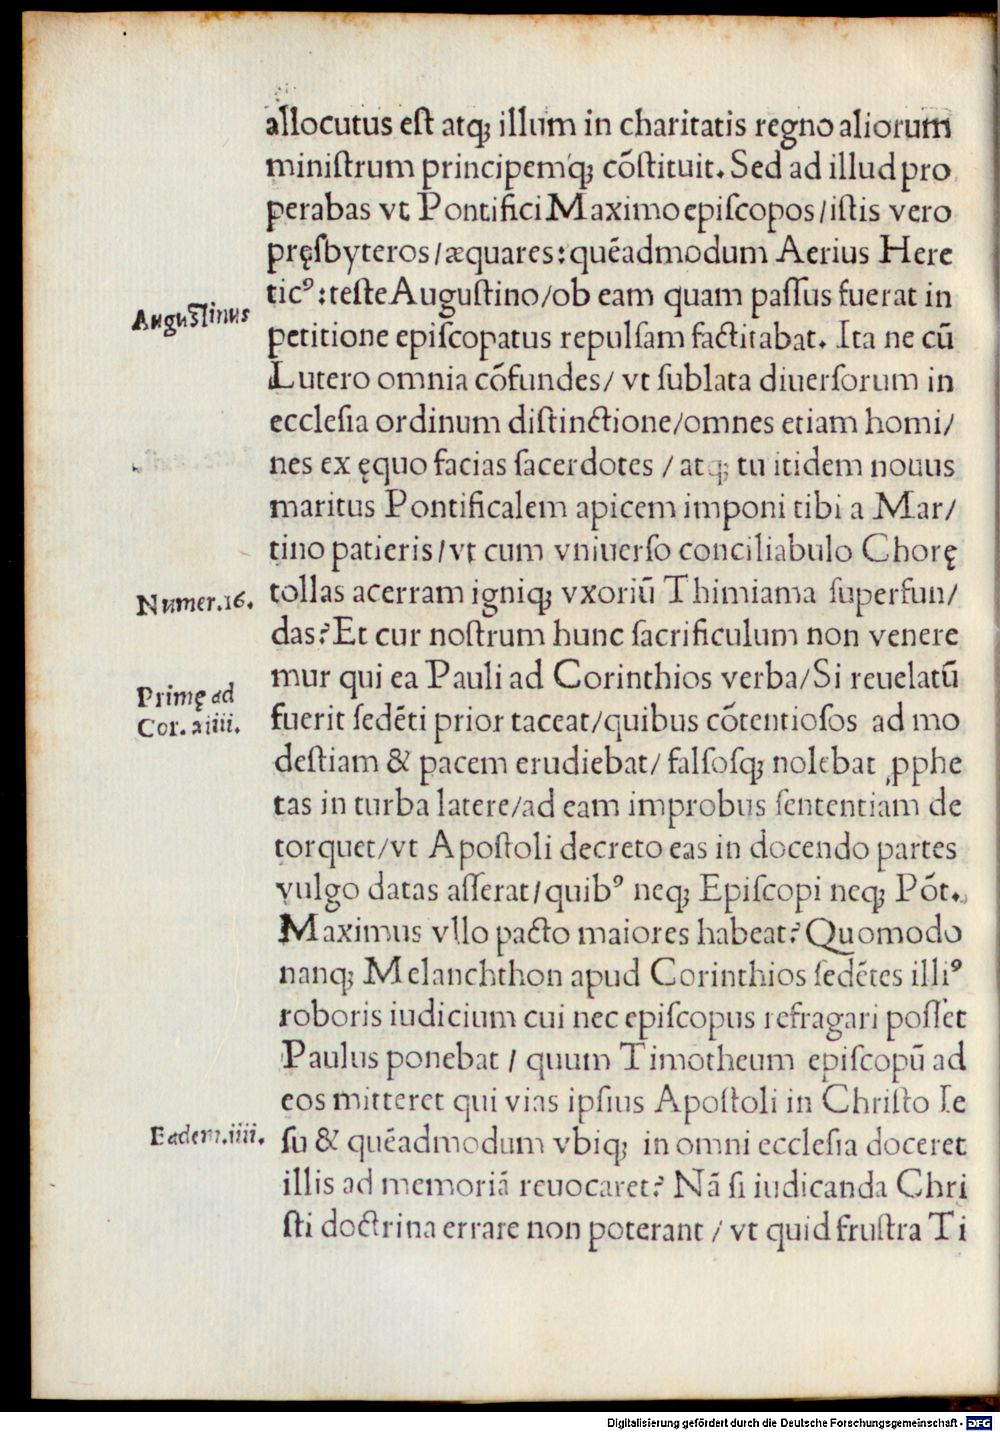 allocutus eſt atq; illum in charitatis regno aliorum
miniſtrum principemq; cõſtituit. Sed ad illud pro
perabas vt Pontifici Maximo epiſcopos/iſtis vero
pręſbyteros/æquares: quẽadmodum Aerius Here
ticꝰ: teſte Auguſtino/ob eam quam paſſus fuerat in
Auguſtinus
petitione epiſcopatus repulſam factitabat. Ita ne cũ
Lutero omnia cõfundes/ vt ſublata diuerſorum in
eccleſia ordinum diſtinctione/omnes etiam homi/
nes ex ęquo facias ſacerdotes / atq; tu itidem nouus
maritus Pontificalem apicem imponi tibi a Mar/
tino patieris/vt cum vniuerſo conciliabulo Chorę
tollas acerram igniq; vxoriũ Thimiama ſuperfun/
Numer.16.
das? Et cur noſtrum hunc ſacrificulum non venere
mur qui ea Pauli ad Corinthios verba/Si reuelatũ
Primę ad
Cor. 14.
fuerit ſedẽti prior taceat/quibus cõtentioſos ad mo
deſtiam & pacem erudiebat/ falſoſq; nolebat ꝓphe
tas in turba latere/ad eam improbus ſententiam de
torquet/vt Apoſtoli decreto eas in docendo partes
vulgo datas aſſerat/quibꝰ neq; Epiſcopi neq; Põt.
Maximus vllo pacto maiores habeat? Quomodo
nanq; Melanchthon apud Corinthios ſedẽtes illiꝰ
roboris iudicium cui nec epiſcopus refragari poſſet
Paulus ponebat / quum Timotheum epiſcopũ ad
eos mitteret qui vias ipſius Apoſtoli in Chriſto Ie
ſu & quẽadmodum vbiq; in omni eccleſia doceret
Eadem.iiii.
illis ad memoriã reuocaret? Nã ſi iudicanda Chri
ſti doctrina errare non poterant / vt quid fruſtra Ti
Digitalisierung gefördert durch die Deutsche Forschungsgemeinschaft - DFG